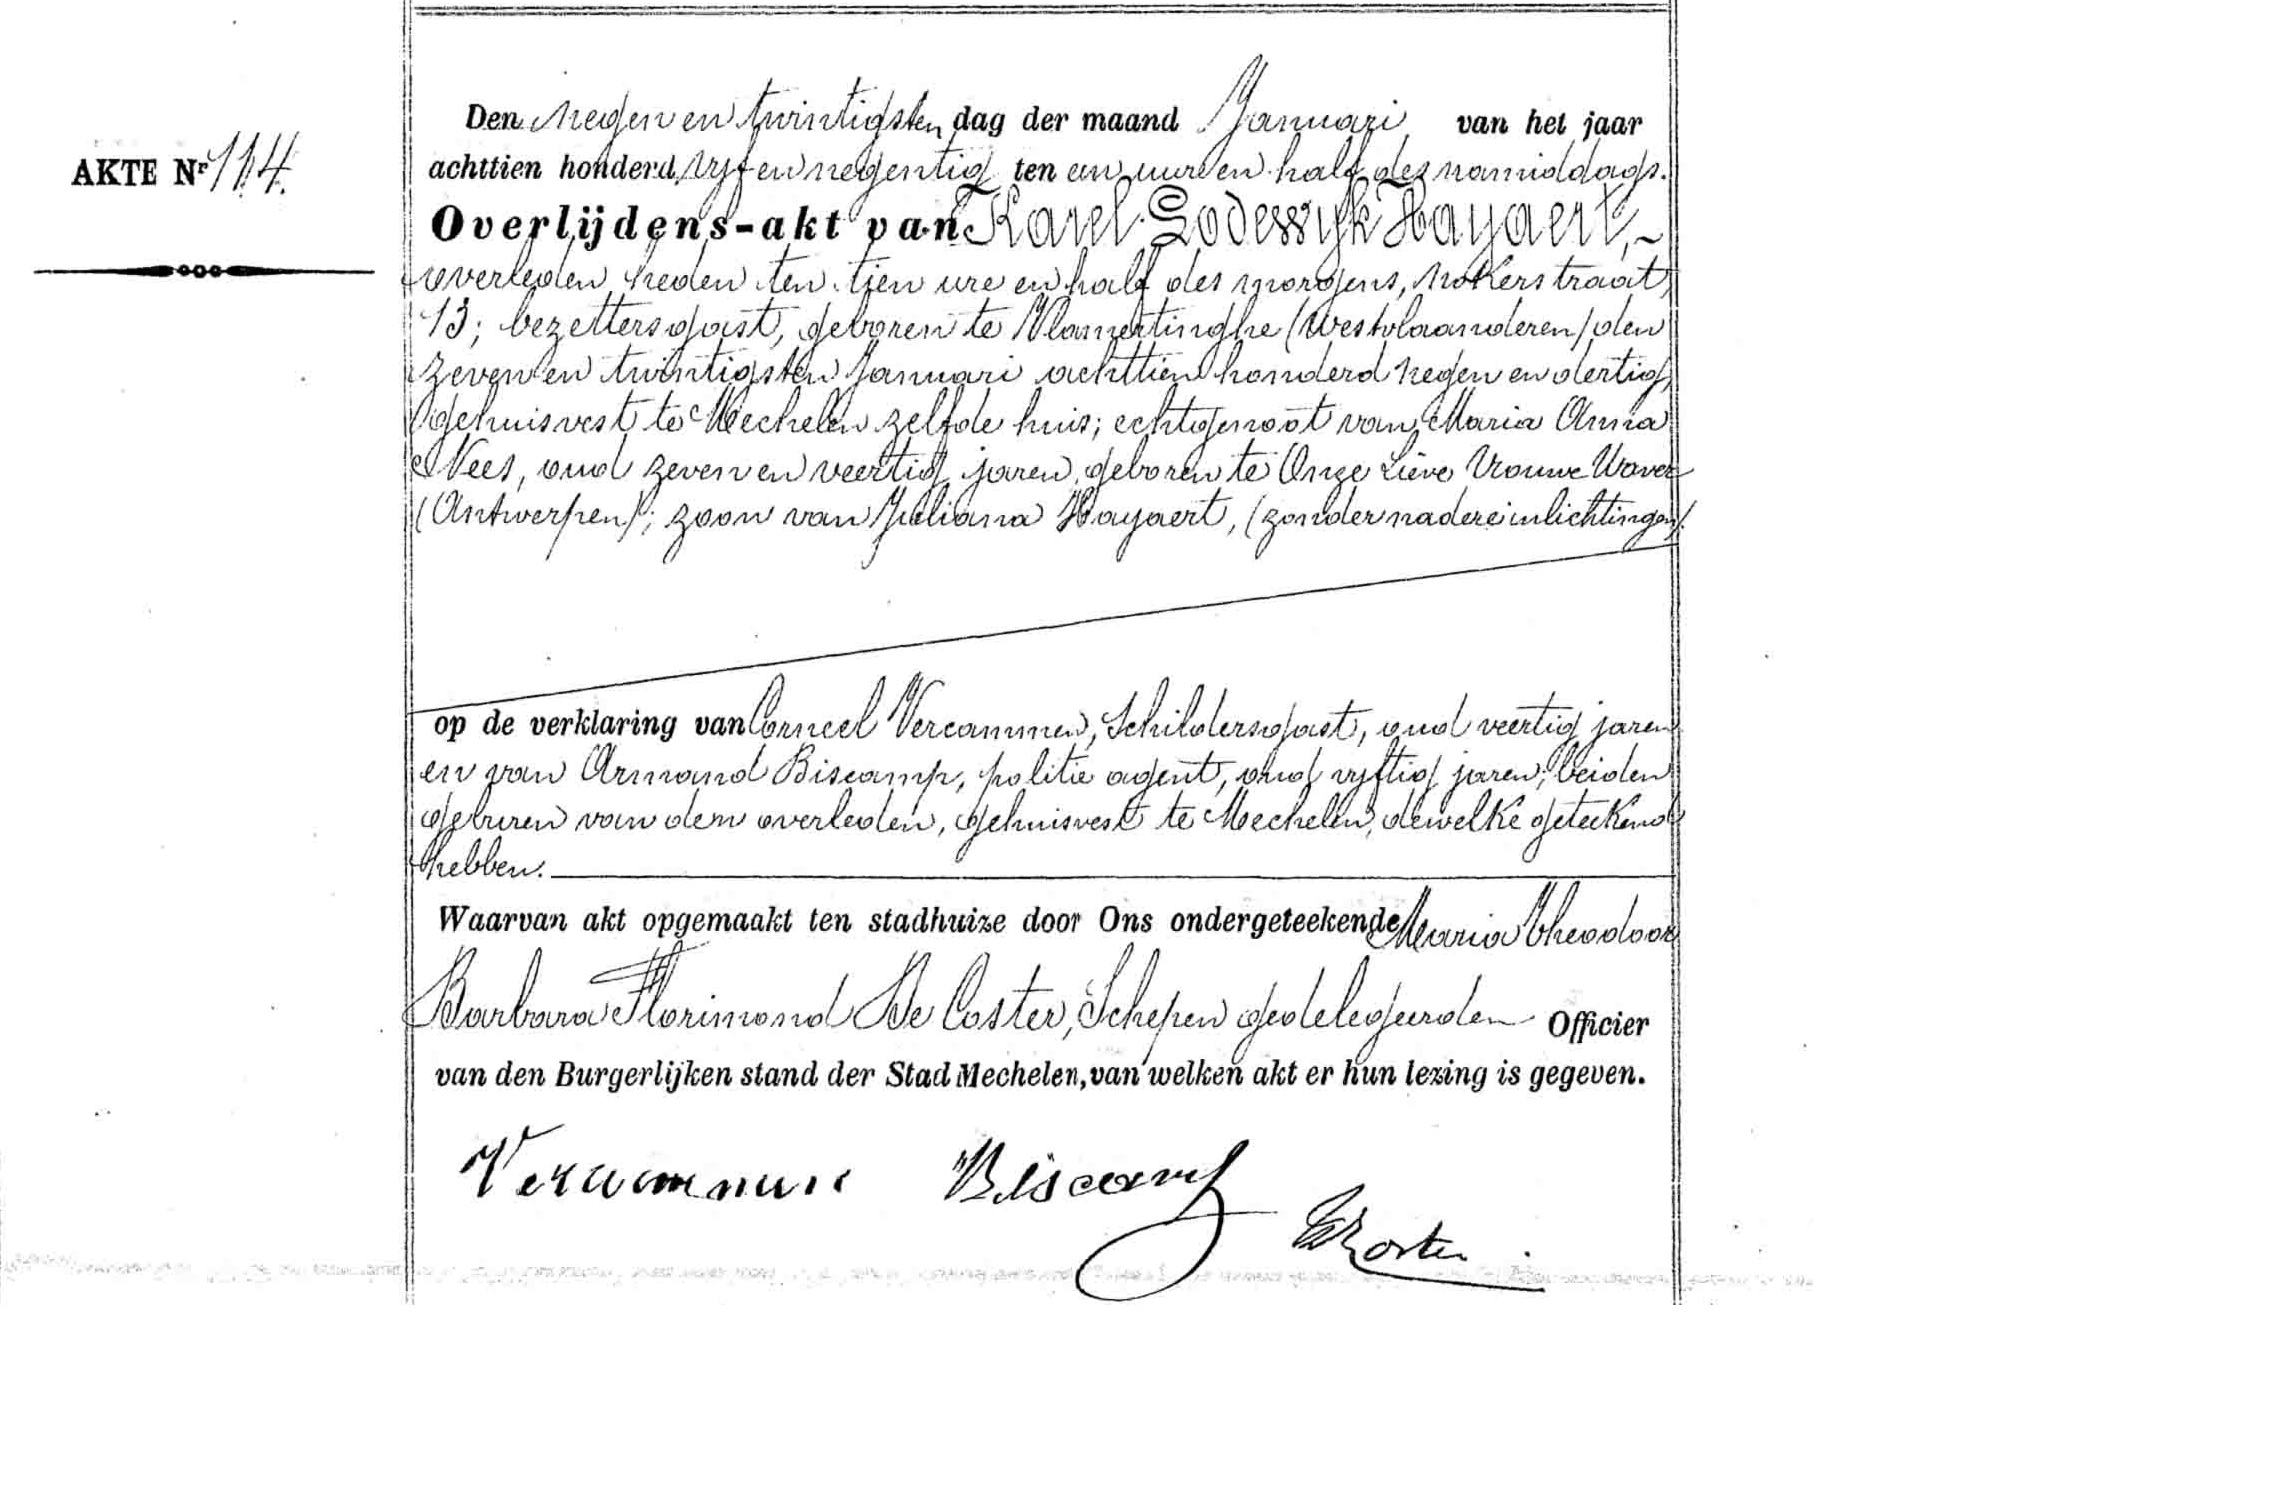 AKTE Nr 114.
Den negen en twintigsten dag der maand Januari van het jaar
achttien honderd vyf en negentig ten een ure en half des namiddags.
Overlijdens-akt van Karel Lodewyk Hayaert,
overleden heden ten tien ure en half des morgens, Nokerstraat,
13; bezettersgast, geboren te Vlamertinghe (Westvlaanderen) den
zeven en twintigsten Januari achttien honderd negen en dertig,
gehuisvest te Mechelen zelfde huis; echtgenoot van Maria Anna
Nees, oud zeven en veertig jaren, geboren te Onze Lieve Vrouwe Waver
(Antwerpen); zoon van Juliana Hayaert, (zonder nadere inlichtingen).
op de verklaring van Corneel Vercammen, Schildersgast, oud veertig jaren
en van Armand Biscamp, politie agent, oud vyftig jaren; beiden
geburen van den overleden, gehuisvest te Mechelen, dewelke geteekend
hebben.
Waarvan akt opgemaakt ten stadhuize door Ons ondergeteekende Maria Theodoor
Barbara Florimond De Coster, Schepen gedelegeerden Officier
van den Burgerlijken stand der Stad Mechelen, van welken akt er hun lezing is gegeven.
Vercammen Biscamp